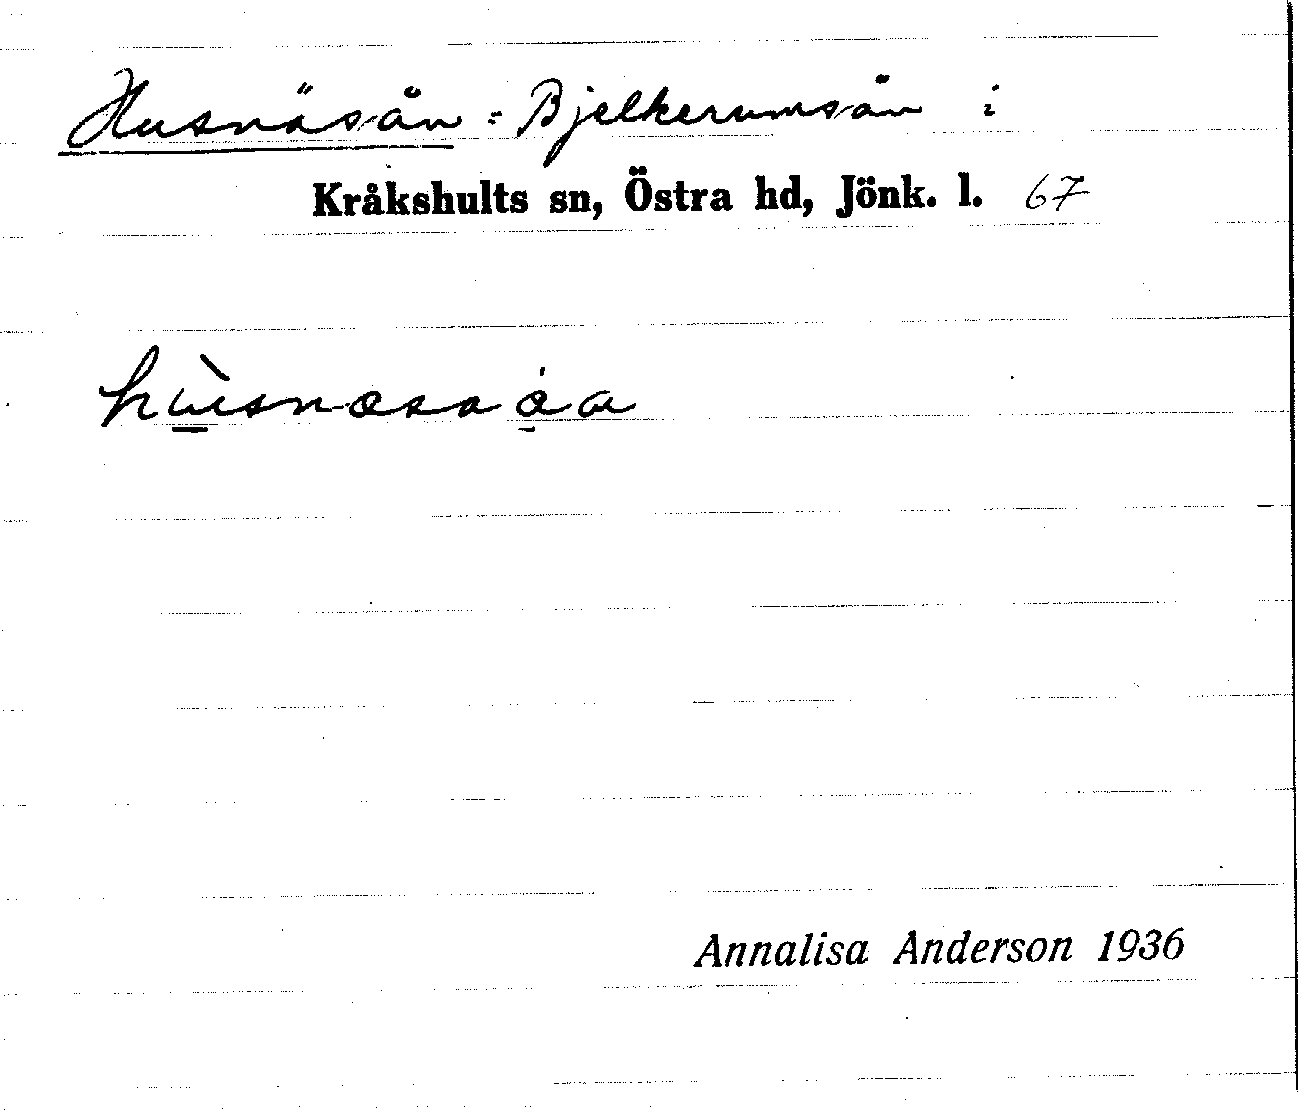 Husnäsån = Bjelkerumsån i
Kråkshults sn, Östra hd, Jönk. l. 67
hùsnæsaåa
Annalisa Anderson 1936